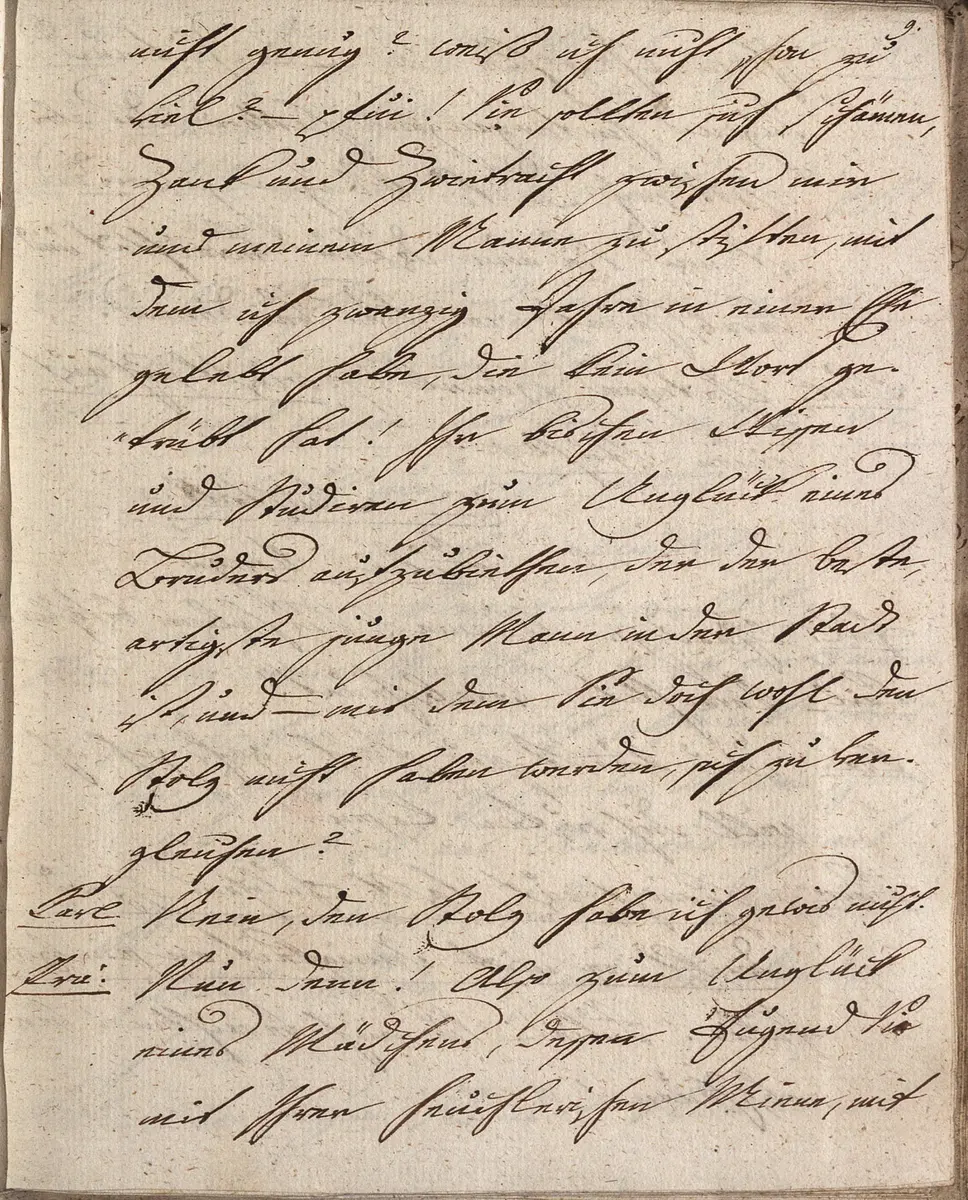 9.
nicht genug? weiß ich nicht schon zu
viel? – pfui! Sie sollten sich schämen,
Zank und Zwietracht zwischen mir
und meinem Manne zu stiften, mit
dem ich zwanzig Jahre in einer Ehe
gelebt habe, die kein Wort ge-
trübt hat! Ihr bischen Wissen
und Studiren zum Unglück eines
Bruders aufzubiethen, der der beste,
artigste junge Mann in der Stadt
ist, und – mit dem Sie doch wohl den
Stolz nicht haben werden, sich zu ver-
gleichen?
Carl. Nein, den Stolz habe ich gewis nicht.
Prä: Nun denn! Also zum Unglück
eines Mädchens, dessen Tugend Sie
mit Ihrer heuchlerischen Miene, mit